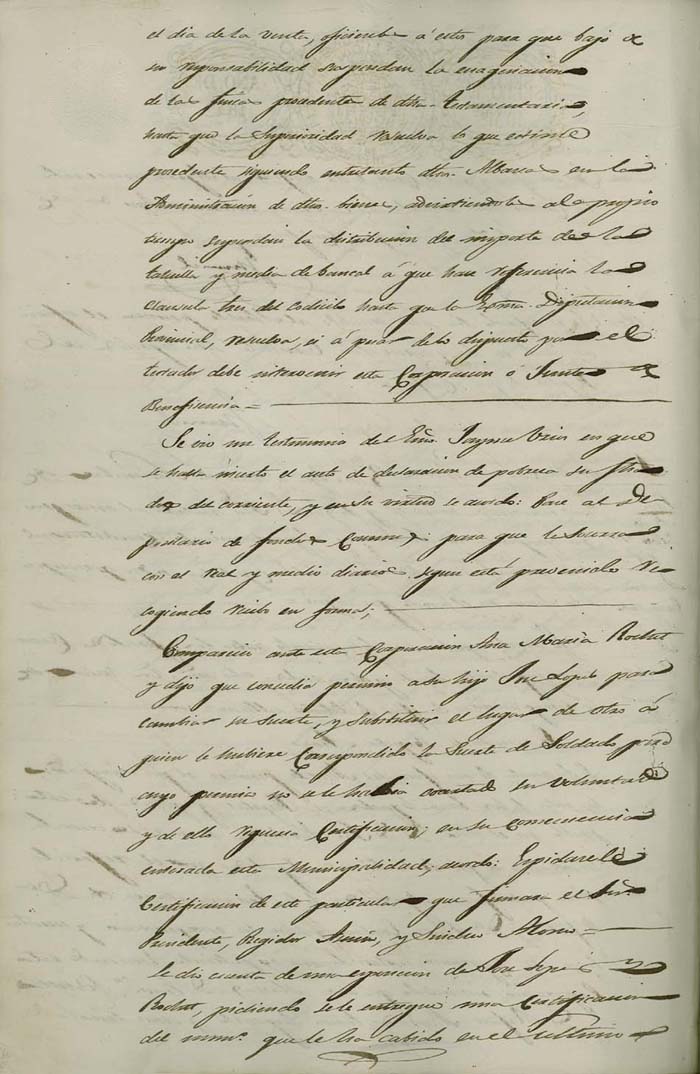 el dia de la venta, oficiese á estos para que bajo
su responsabilidad suspendan la enagenacion
de la finca procedente de dha. Testamentaria,
hasta que la Superioridad resuelva lo que estime
procedente siguiendo entretanto dho. Albacea en la
Administracion de dhos. bienes, advirtiendole al propio
tiempo suspendan la distribucion del importe de la
tahulla y media de bancal á que hace referencia la
clausula tres del codicilo hasta que la Exma. Diputacion
Provincial, resuelva, si á pesar de lo dispuesto por el
testador debe intervenir esta Corporacion ó Junta de
Beneficencia =
Se vio un testimonio del Esno. Jayme en que
se halla inserto el auto de declaracion de pobreza su fha
del corriente, y en su virtud se acordó: Pase al De
positario de fondos Comunes para que le socorra
con el real y medio diario, segun está prevenido re
cogiendo recibo en forma;
Comparecio ante esta Corporacion Ana Maria
y dijo que concedia permiso a su hijo Jose Lopez para
cambiar su suerte, y substituir el lugar de otro á
quien le hubiere correspondido la Suerte de Soldado para
cuyo permiso no se le habia coartado su voluntad
y de ello requeria Certificacion; en su consecuencia
enterada esta Municipalidad, acordó: Espidasele
Certificacion de este particular que firmara el Señor
Presidente, Regidor y Sindico Alonso =
Se dio cuenta de una esposicion de Jose Lopez y
pidiendo se le entregue una Certificacion
del numo. que le ha cabido en el ultimo